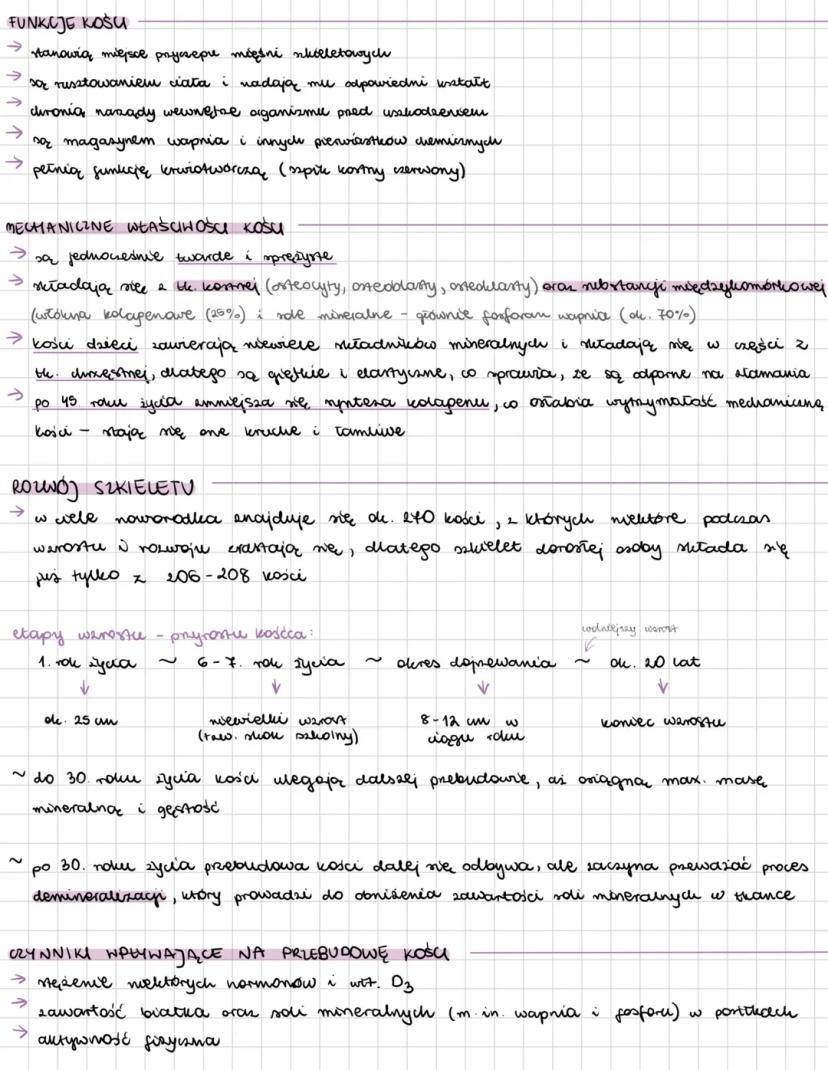 FUNKCJE KOŚCI
→ stanowią miejsce przyczepu mięśni szkieletowych
→ są rusztowaniem ciała i nadają mu odpowiedni kształt
→ chronią narządy wewnętrze organizmu przed uszkodzeniem
→ są magazynem wapnia i innych pierwiastków chemicznych
→ pełnią funkcję krwiotwórczą (szpik kostny czerwony)
MECHANICZNE WŁAŚCIWOŚCI KOŚCI
→ są jednocześnie twarde i sprężyste
→ składają się z tk. kostnej (osteocyty, osteoblasty, osteoklasty) oraz substancji międzykomórkowej
(włókna kolagenowe (25%) i sole mineralne - głównie fosforan wapnia (ok. 70%)
→ kości dzieci zawierają niewiele składników mineralnych i składają się w części z
tk. chrzęstnej, dlatego są giętkie i elastyczne, co sprawia, że są odporne na złamania
→ po 45. roku życia zmniejsza się synteza kolagenu, co osłabia wytrzymałość mechaniczną
kości - stają się one kruche i łamliwe
ROZWÓJ SZKIELETU
→ w ciele noworodka znajduje się ok. 270 kości, z których niektóre podczas
wzrostu i rozwoju zrastają się, dlatego szkielet dorosłej osoby składa się
już tylko z 206-208 kości
etapy wzrostu - przyrostu kośćca:
wolniejszy wzrost
1. rok życia ~ 6-7. rok życia ~ okres dojrzewania ~ ok. 20 lat
↓ ↓ ↓ ↓
ok. 25 cm niewielki wzrost 8-12 cm w koniec wzrostu
(tzw. skok szkolny) ciągu roku
~ do 30. roku życia kości ulegają dalszej przebudowie, aż osiągną max. masę
mineralną i gęstość
~ po 30. roku życia przebudowa kości dalej się odbywa, ale zaczyna przeważać proces
demineralizacji, który prowadzi do obniżenia zawartości soli mineralnych w tkance
CZYNNIKI WPŁYWAJĄCE NA PRZEBUDOWĘ KOŚCI
→ stężenie niektórych hormonów i wit. D₃
→ zawartość białka oraz soli mineralnych (m.in. wapnia i fosforu) w posiłkach
→ aktywność fizyczna